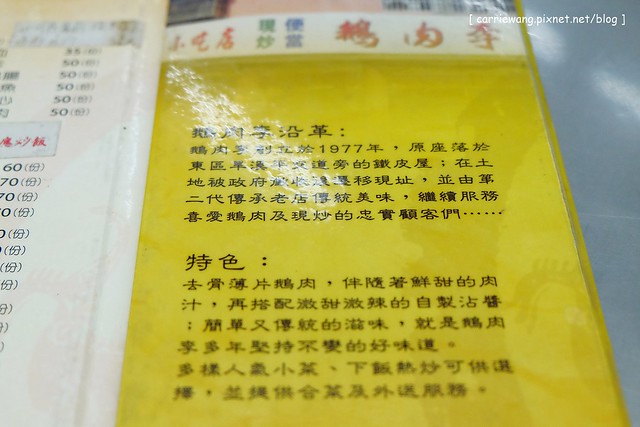 [ carriewang.pixnet.net/blog ]
小吃店 現炒 便當 鵝肉李
鵝肉李沿革：
鵝肉李創立於1977年，原座落於
東區旱溪平交道旁的鐵皮屋；在土
地被政府徵收後遷移現址，並由第
二代傳承老店傳統美味，繼續服務
喜愛鵝肉及現炒的忠實顧客們……
特色：
去骨薄片鵝肉，伴隨著鮮甜的肉
汁，再搭配微甜微辣的自製沾醬
；簡單又傳統的滋味，就是鵝肉
李多年堅持不變的好味道。
多樣人氣小菜、下飯熱炒可供選
擇，並提供合菜及外送服務。
35(份)
50(份)
腸 50(份)
魚 50(份)
50(份)
肉 50(份)
炒飯
60(份)
70(份)
70(份)
70(份)
0(份)
0(份)
(份)
(份)